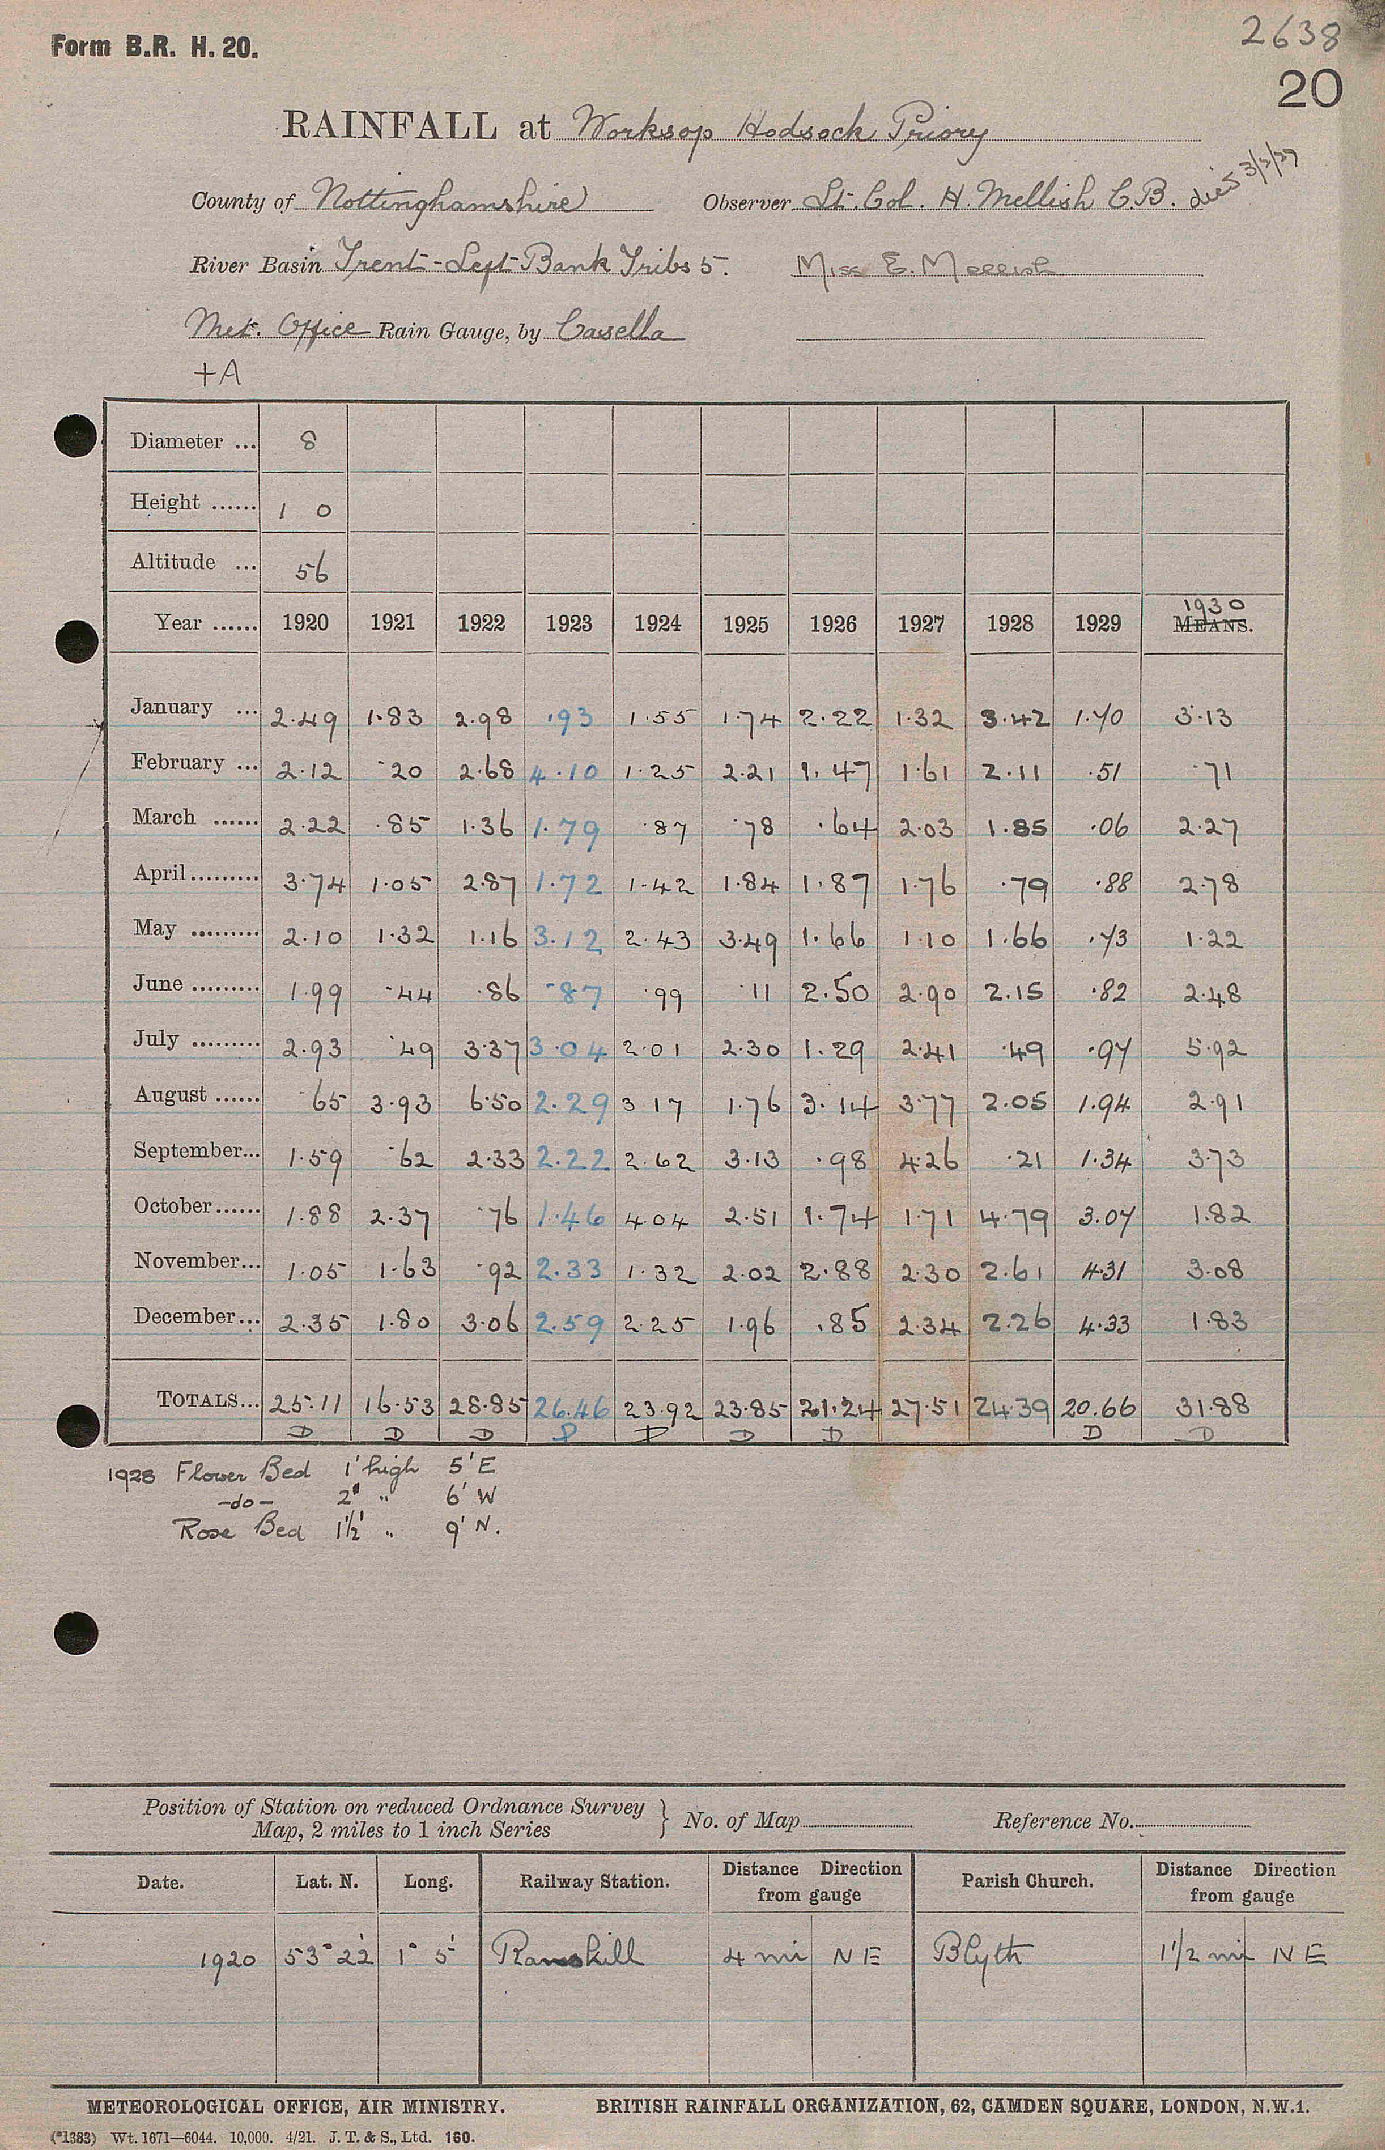 2638
Form B.R. H. 20.
20
RAINFALL at Worksop Hodsock Priory
County of Nottinghamshire Observer Lt. Col. H. Mellish C.B. died 3/2/27
River Basin Trent - Left Bank Tribs 5. Miss E. Mellish
Met. Office Rain Gauge, by Casella
+A
Diameter ... 8
Height ...... 1 0
Altitude ... 56
Year ...... 1920 1921 1922 1923 1924 1925 1926 1927 1928 1929 1930 MEANS.
January ... 2.49 1.83 2.98 .93 1.55 1.74 2.22 1.32 3.42 1.70 3.13
February ... 2.12 .20 2.68 4.10 1.25 2.21 1.47 1.61 2.11 .51 .71
March ...... 2.22 .85 1.36 1.79 .87 .78 .64 2.03 1.85 .06 2.27
April ......... 3.74 1.05 2.87 1.72 1.42 1.84 1.87 1.76 .79 .88 2.78
May ......... 2.10 1.32 1.16 3.12 2.43 3.49 1.66 1.10 1.66 .73 1.22
June ......... 1.99 .44 .86 .87 .99 .11 2.50 2.90 2.15 .82 2.48
July ......... 2.93 .49 3.37 3.04 2.01 2.30 1.29 2.41 .49 .97 5.92
August ...... .65 3.93 6.50 2.29 3 17 1.76 3.14 3.77 2.05 1.94 2.91
September... 1.59 .62 2.33 2.22 2.62 3.13 .98 4.26 .21 1.34 3.73
October...... 1.88 2.37 .76 1.46 4.04 2.51 1.74 1.71 4.79 3.07 1.82
November... 1.05 1.63 .92 2.33 1.32 2.02 2.88 2.30 2.61 4.31 3.08
December... 2.35 1.80 3.06 2.59 2.25 1.96 .85 2.34 2.26 4.33 1.83
TOTALS... 25.11 16.53 28.85 26.46 23.92 23.85 21.24 27.51 24.39 20.66 31.88
D D D D D D D D D
1928 Flower Bed 1' high 5' E
-do- 2' " 6' W
Rose Bed 1½' " 9' N.
Position of Station on reduced Ordnance Survey
Map, 2 miles to 1 inch Series } No. of Map Reference No.
Date. Lat. N. Long. Railway Station. Distance Direction from gauge Parish Church. Distance Direction from gauge
1920 53° 22' 1° 5' Ranskill 4 mi N E Blyth 1 1/2 mi N E
METEOROLOGICAL OFFICE, AIR MINISTRY. BRITISH RAINFALL ORGANIZATION, 62, CAMDEN SQUARE, LONDON, N.W.1.
(*1383) Wt. 1671—6044. 10,000. 4/21. J. T. & S., Ltd. 160.